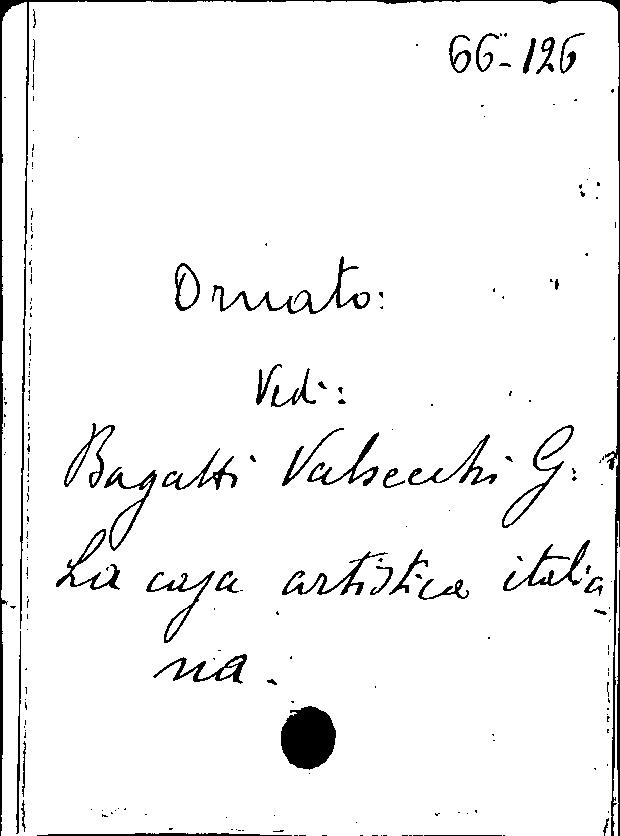 66-126
Ornato:
Vedi:
Bagatti Valsecchi G:
La casa artistica italia
na.